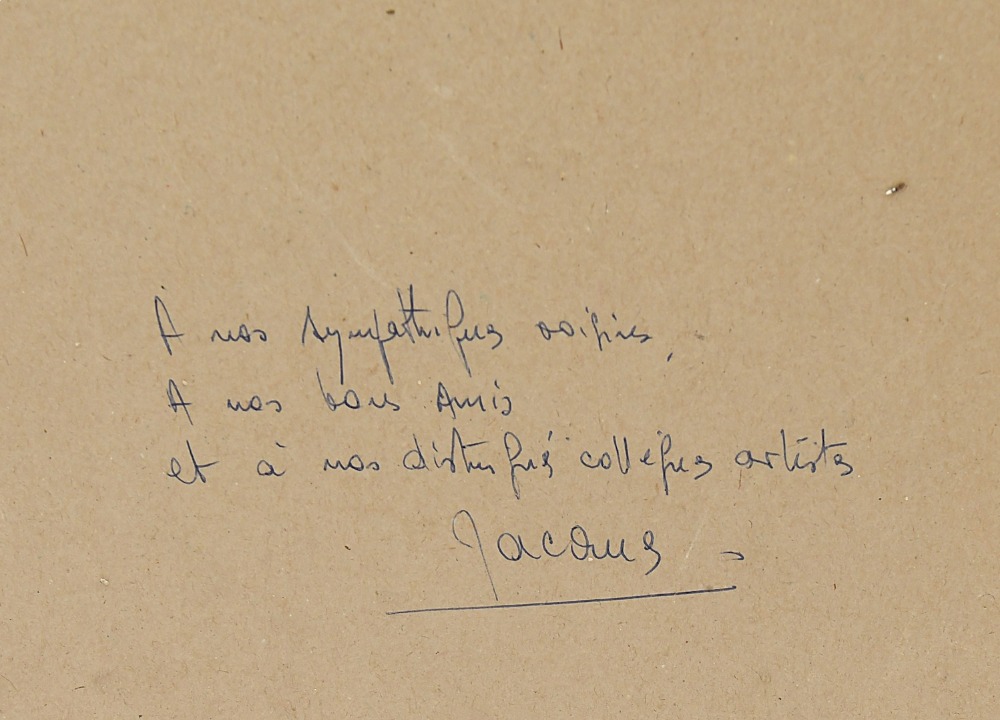 A nos sympathiques voisins,
A nos bons Amis
et à nos distingués collègues artistes
Jacques